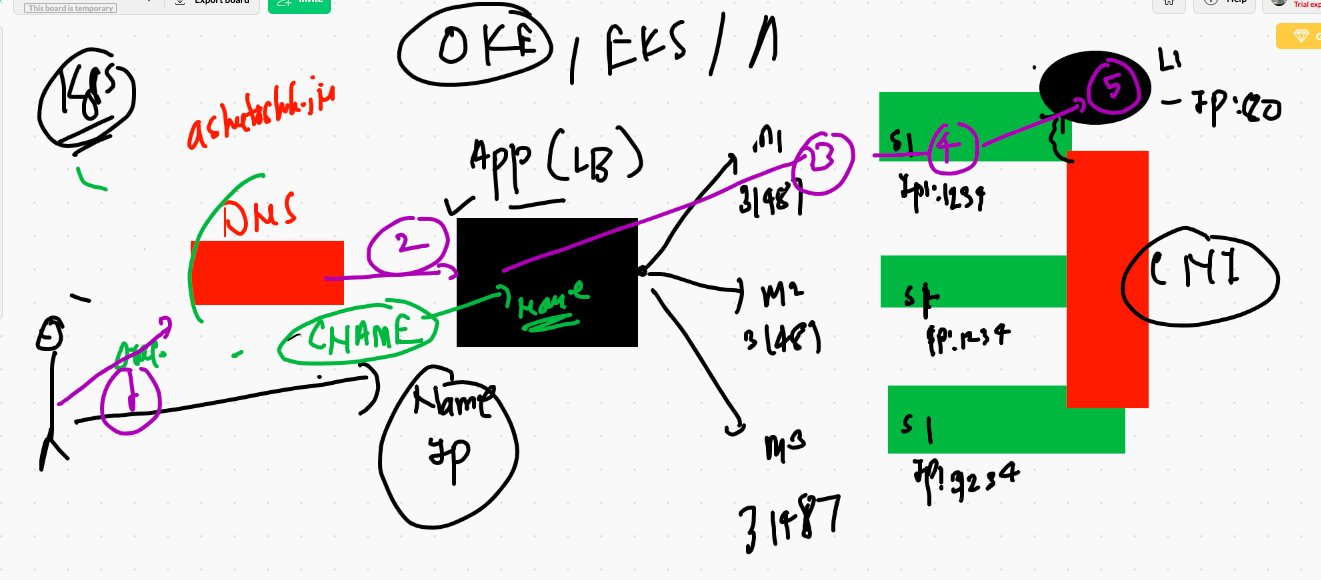 This board is temporary
Export board
Invite
Help
Trial exp
G
K8s
OKE / EKS / A
ashutoshh.in
App (LB)
DNS
2
CNAME
Name
1
Name
IP
M1
31487
M2
31487
M3
31487
3
S1
4
IP:1234
S1
IP:1234
S1
IP:1234
5
L1
- IP:80
CNI